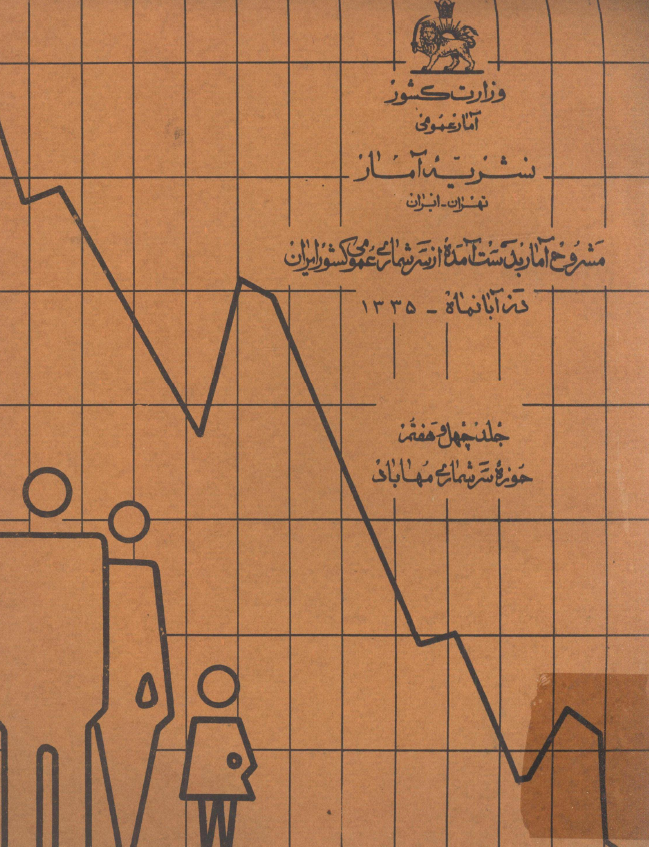 وزارت کشور
آمار عمومی
نشریه آمار
تهران - ایران
مشروح آمار بدست آمده از سرشماری عمومی کشور ایران
در آبانماه - ۱۳۳۵
جلد چهل و هفتم
حوزهٔ سرشماری مهاباد